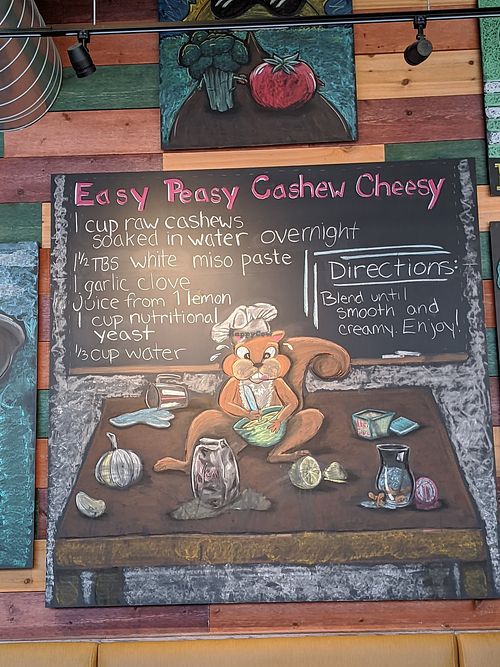 Easy Peasy Cashew Cheesy
1 cup raw cashews
soaked in water overnight
1 1/2 TBS white miso paste
1 garlic clove
juice from 1 lemon
1 cup nutritional
yeast
1/3 cup water
Directions:
Blend until
smooth and
creamy. Enjoy!
HappyCow